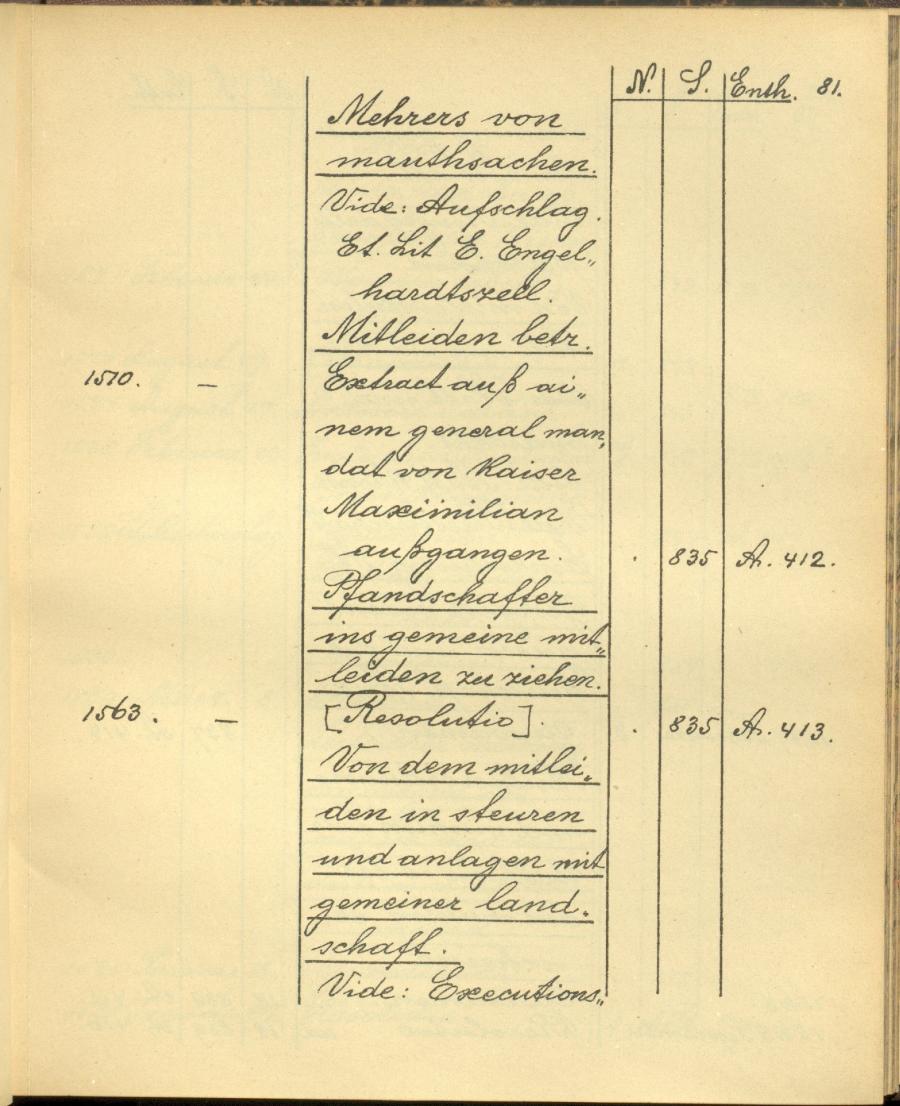 N. S. Enth. 81.
Mehrers von
mauthsachen.
Vide: Aufschlag.
Et. Lit E. Engel„
hardtszell.
Mitleiden betr.
1510. — Extract auß ai„
nem general man„
dat von Kaiser
Maximilian
außgangen. . 835 A. 412.
Pfandschafter
ins gemeine mit„
leiden zu ziehen.
1563. — [Resolutio]. . 835 A. 413.
Von dem mitlei„
den in steuren
und anlagen mit
gemeiner land„
schaft.
Vide: Executions„